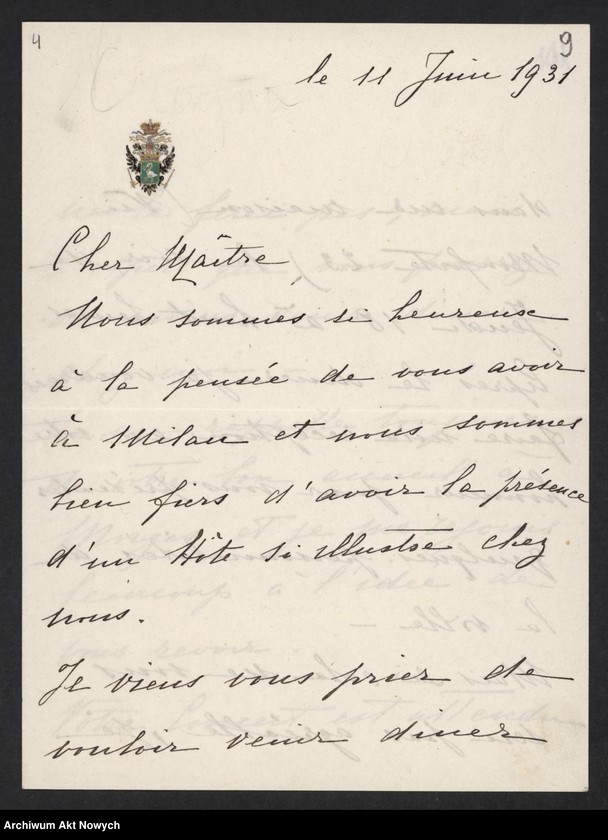 4
9
le 11 Juin 1931
Cher Maître,
Nous sommes si heureux
à la pensée de vous avoir
à Milan et nous sommes
bien fiers d'avoir la présence
d'un Hôte si illustre chez
nous.
Je viens vous prier de
vouloir venir diner
Archiwum Akt Nowych